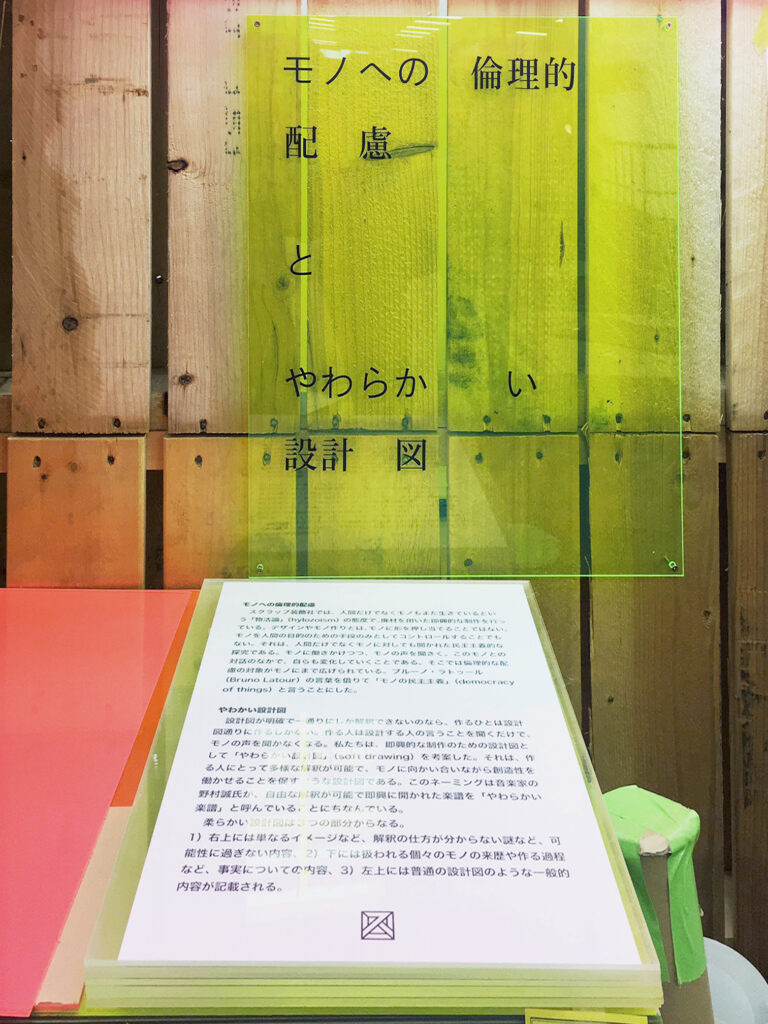 モノへの　倫理的
配　慮
と
やわらか　　い
設計　図
モノへの倫理的配慮
スクラップ装飾社では、人間だけでなくモノもまた生きているとい
う「物活論」(hylozoism) の態度で、廃材を用いた即興的な制作を行っ
ている。デザインやモノ作りとは、モノに形を押し当てることではない。
モノを人間の目的のための手段のみとしてコントロールすることでも
ない。それは、人間だけでなくモノに対しても開かれた民主主義的な
探究である。モノに働きかけつつ、モノの声を聞きく、このモノとの
対話のなかで、自らも変化していくことである。そこでは倫理的な配
慮の対象がモノにまで広げられている。ブルーノ・ラトゥール
(Bruno Latour) の言葉を借りて「モノの民主主義」(democracy
of things) と言うことにした。
やわかい設計図
設計図が明確で一通りにしか解釈できないのなら、作るひとは設計
図通りに作るしかない。作る人は設計する人の言うことを聞くだけで、
モノの声を聞かなくなる。私たちは、即興的な制作のための設計図と
して「やわらかい設計図」(soft drawing) を考案した。それは、作
る人にとって多様な解釈が可能で、モノに向かい合いながら創造性を
働かせることを促すような設計図である。このネーミングは音楽家の
野村誠氏が、自由な解釈が可能で即興に開かれた楽譜を「やわらかい
楽譜」と呼んでいることにちなんでいる。
柔らかい設計図は３つの部分からなる。
1）右上には単なるイメージなど、解釈の仕方が分からない謎など、可
能性に過ぎない内容、2）下には扱われる個々のモノの来歴や作る過程
など、事実についての内容、3）左上には普通の設計図のような一般的
内容が記載される。